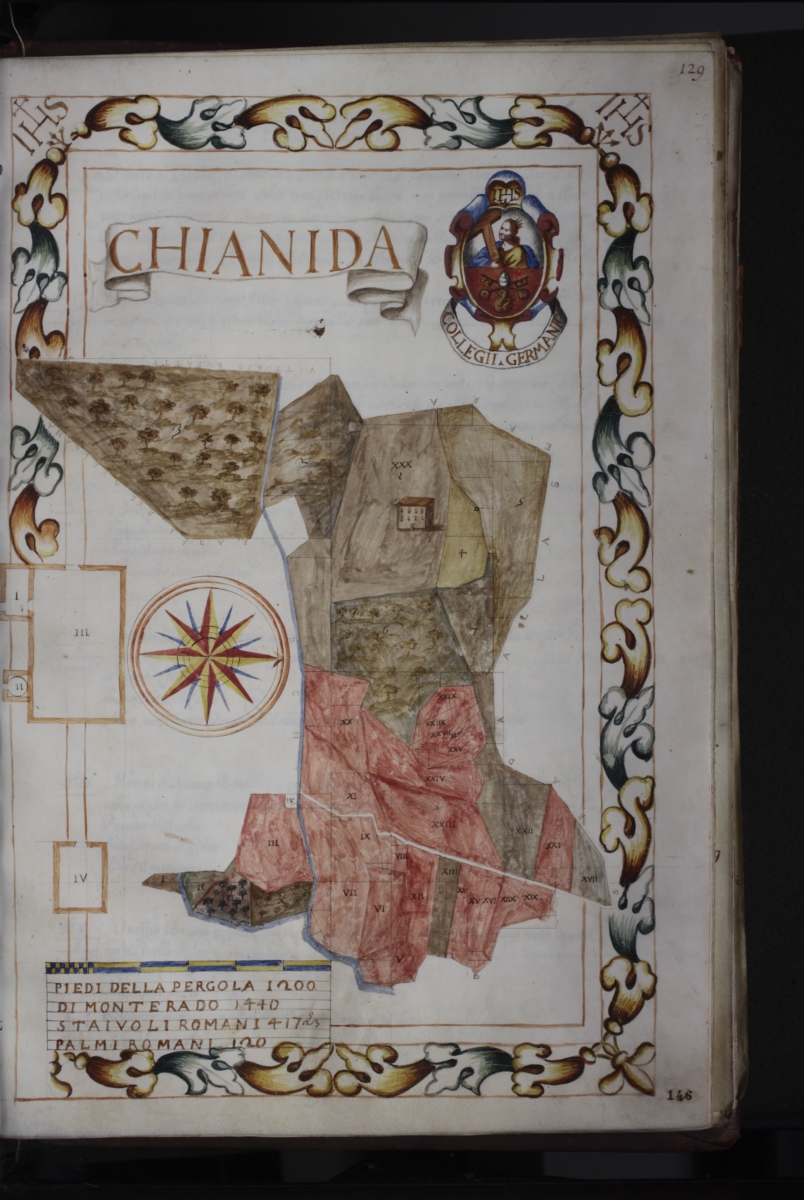 129
IHS
IHS
IHS
CHIANIDA
COLLEGII. GERMANI
XXX
I
III
II
IV
XXIX
XX
XXIIX
XXV
XXIV
XI
XXIII
IX
XXII
XXI
III
VIII
XIII
XVII
VII
VI
XII
XV
XVI
XIIX
XIX
V
PIEDI DELLA PERGOLA 1200
DI MONTERADO 1440
STAIVOLI ROMANI 417
PALMI ROMANI 120
146